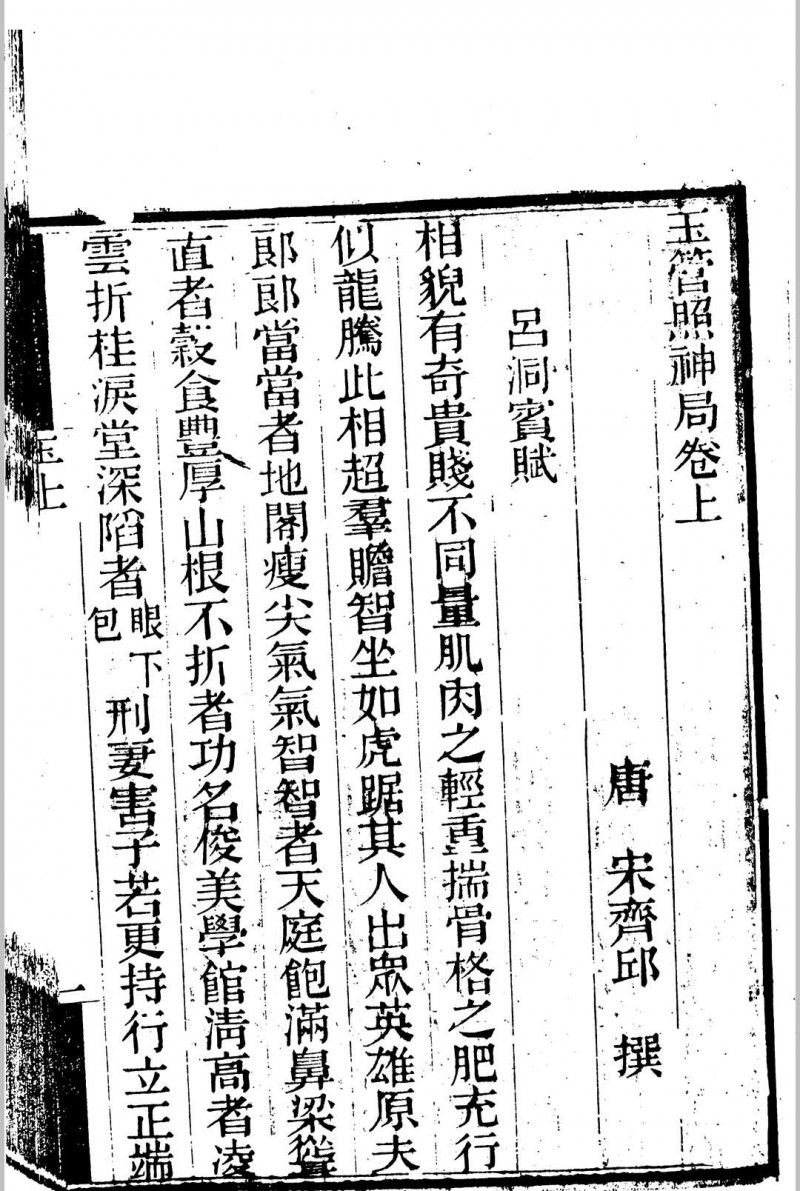 玉管照神局卷上
唐 宋齊邱 撰
呂洞賓賦
相貌有奇貴賤不同量肌肉之輕重揣骨格之肥充行
似龍騰此相超羣贍智坐如虎踞其人出眾英雄原夫
郞郞當當者地閣瘦尖氣氣智智者天庭飽滿鼻梁聳
直者穀食豐厚山根不折者功名俊美學館淸高者凌
雲折桂淚堂深陷者眼下包刑妻害子若更持行立正端
玉上
一